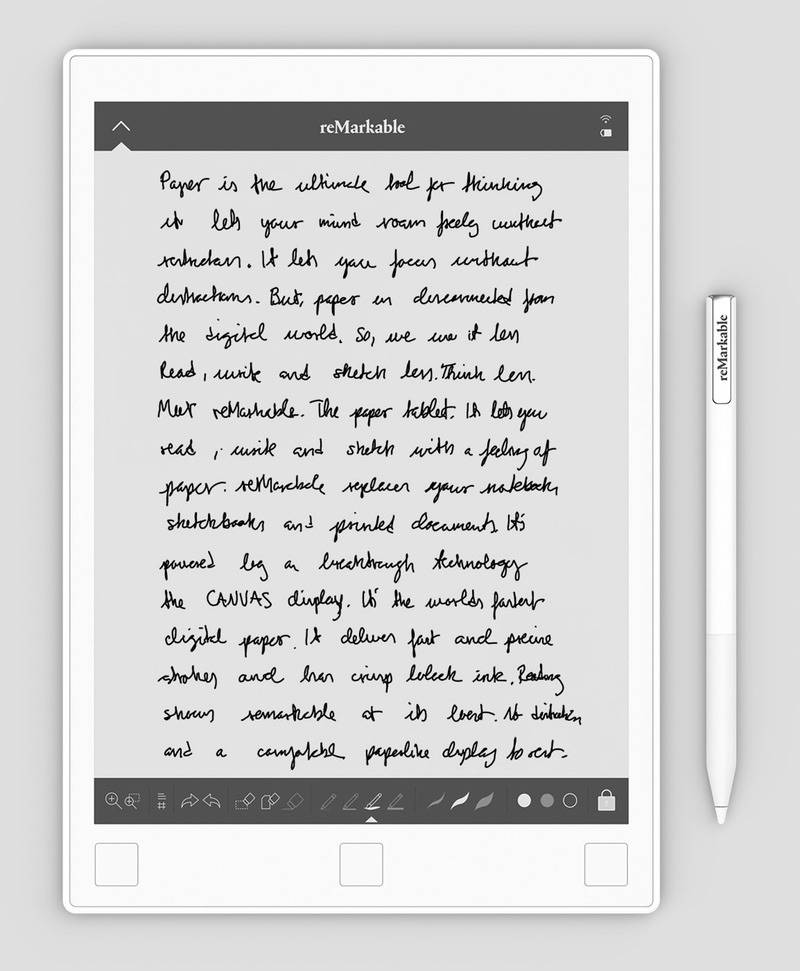 reMarkable
Paper is the ultimate tool for thinking
it lets your mind roam freely without
restrictions. It lets you focus without
distractions. But, paper is disconnected from
the digital world. So, we use it less
Read, write and sketch less. Think less.
Meet reMarkable. The paper tablet. It lets you
read, write and sketch with a feeling of
paper. reMarkable replaces your notebooks,
sketchbooks and printed documents. It's
powered by a breakthrough technology
the CANVAS display. It's the worlds fastest
digital paper. It delivers fast and precise
strokes and has crisp black ink. Reading
shows remarkable at its best. No distractions
and a comfortable paperlike display to rest.
reMarkable